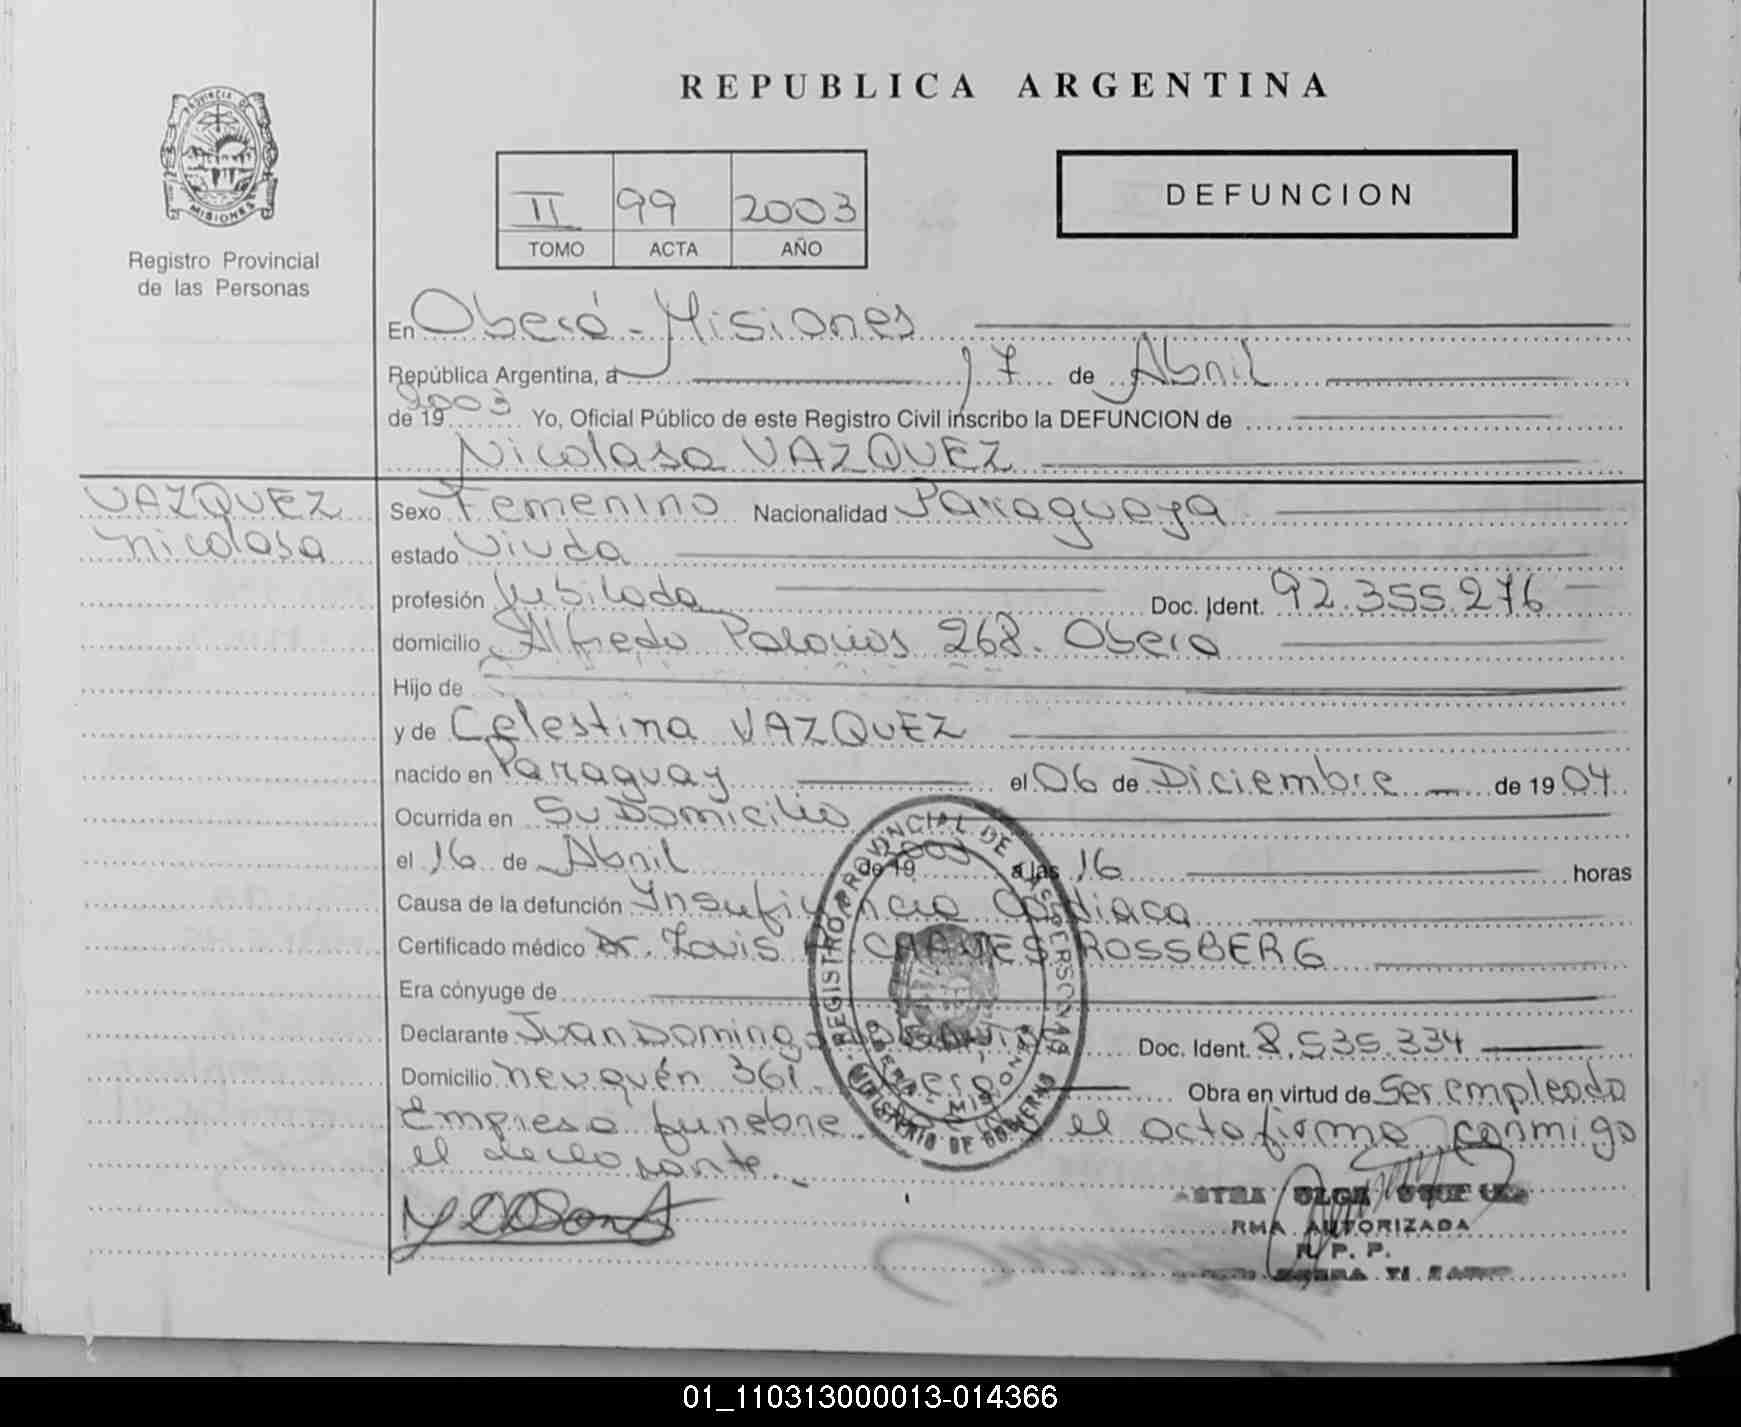 REPUBLICA ARGENTINA
PROVINCIA DE
MISIONES
Registro Provincial
de las Personas
II 99 2003
TOMO ACTA AÑO
DEFUNCION
En Oberá - Misiones
República Argentina, a 17 de Abril
de 19 2003 Yo, Oficial Público de este Registro Civil inscribo la DEFUNCION de
Nicolasa VAZQUEZ
VAZQUEZ
Nicolasa
Sexo Femenino Nacionalidad Paraguaya
estado Viuda
profesión Jubilada Doc. Ident. 92.355.276
domicilio Alfredo Palacios 268. Obera
Hijo de
y de Celestina VAZQUEZ
nacido en Paraguay el 06 de Diciembre de 19 04
Ocurrida en Su Domicilio
el 16 de Abril de 19 2003 a las 16 horas
Causa de la defunción Insuficiencia Cardiaca
Certificado médico Dr. Louis CHAVES ROSSBERG
Era cónyuge de
Declarante Juan Domingo Doc. Ident. 8.535.334
Domicilio Neuquén 361. Obera Obra en virtud de Ser empleado
Empresa funebre. el acta firma conmigo
el declarante.
REGISTRO PROVINCIAL DE LAS PERSONAS
MINISTERIO DE GOBIERNO
OBERA - MISIONES
OLGA
RMA AUTORIZADA
R. P. P.
01_110313000013-014366